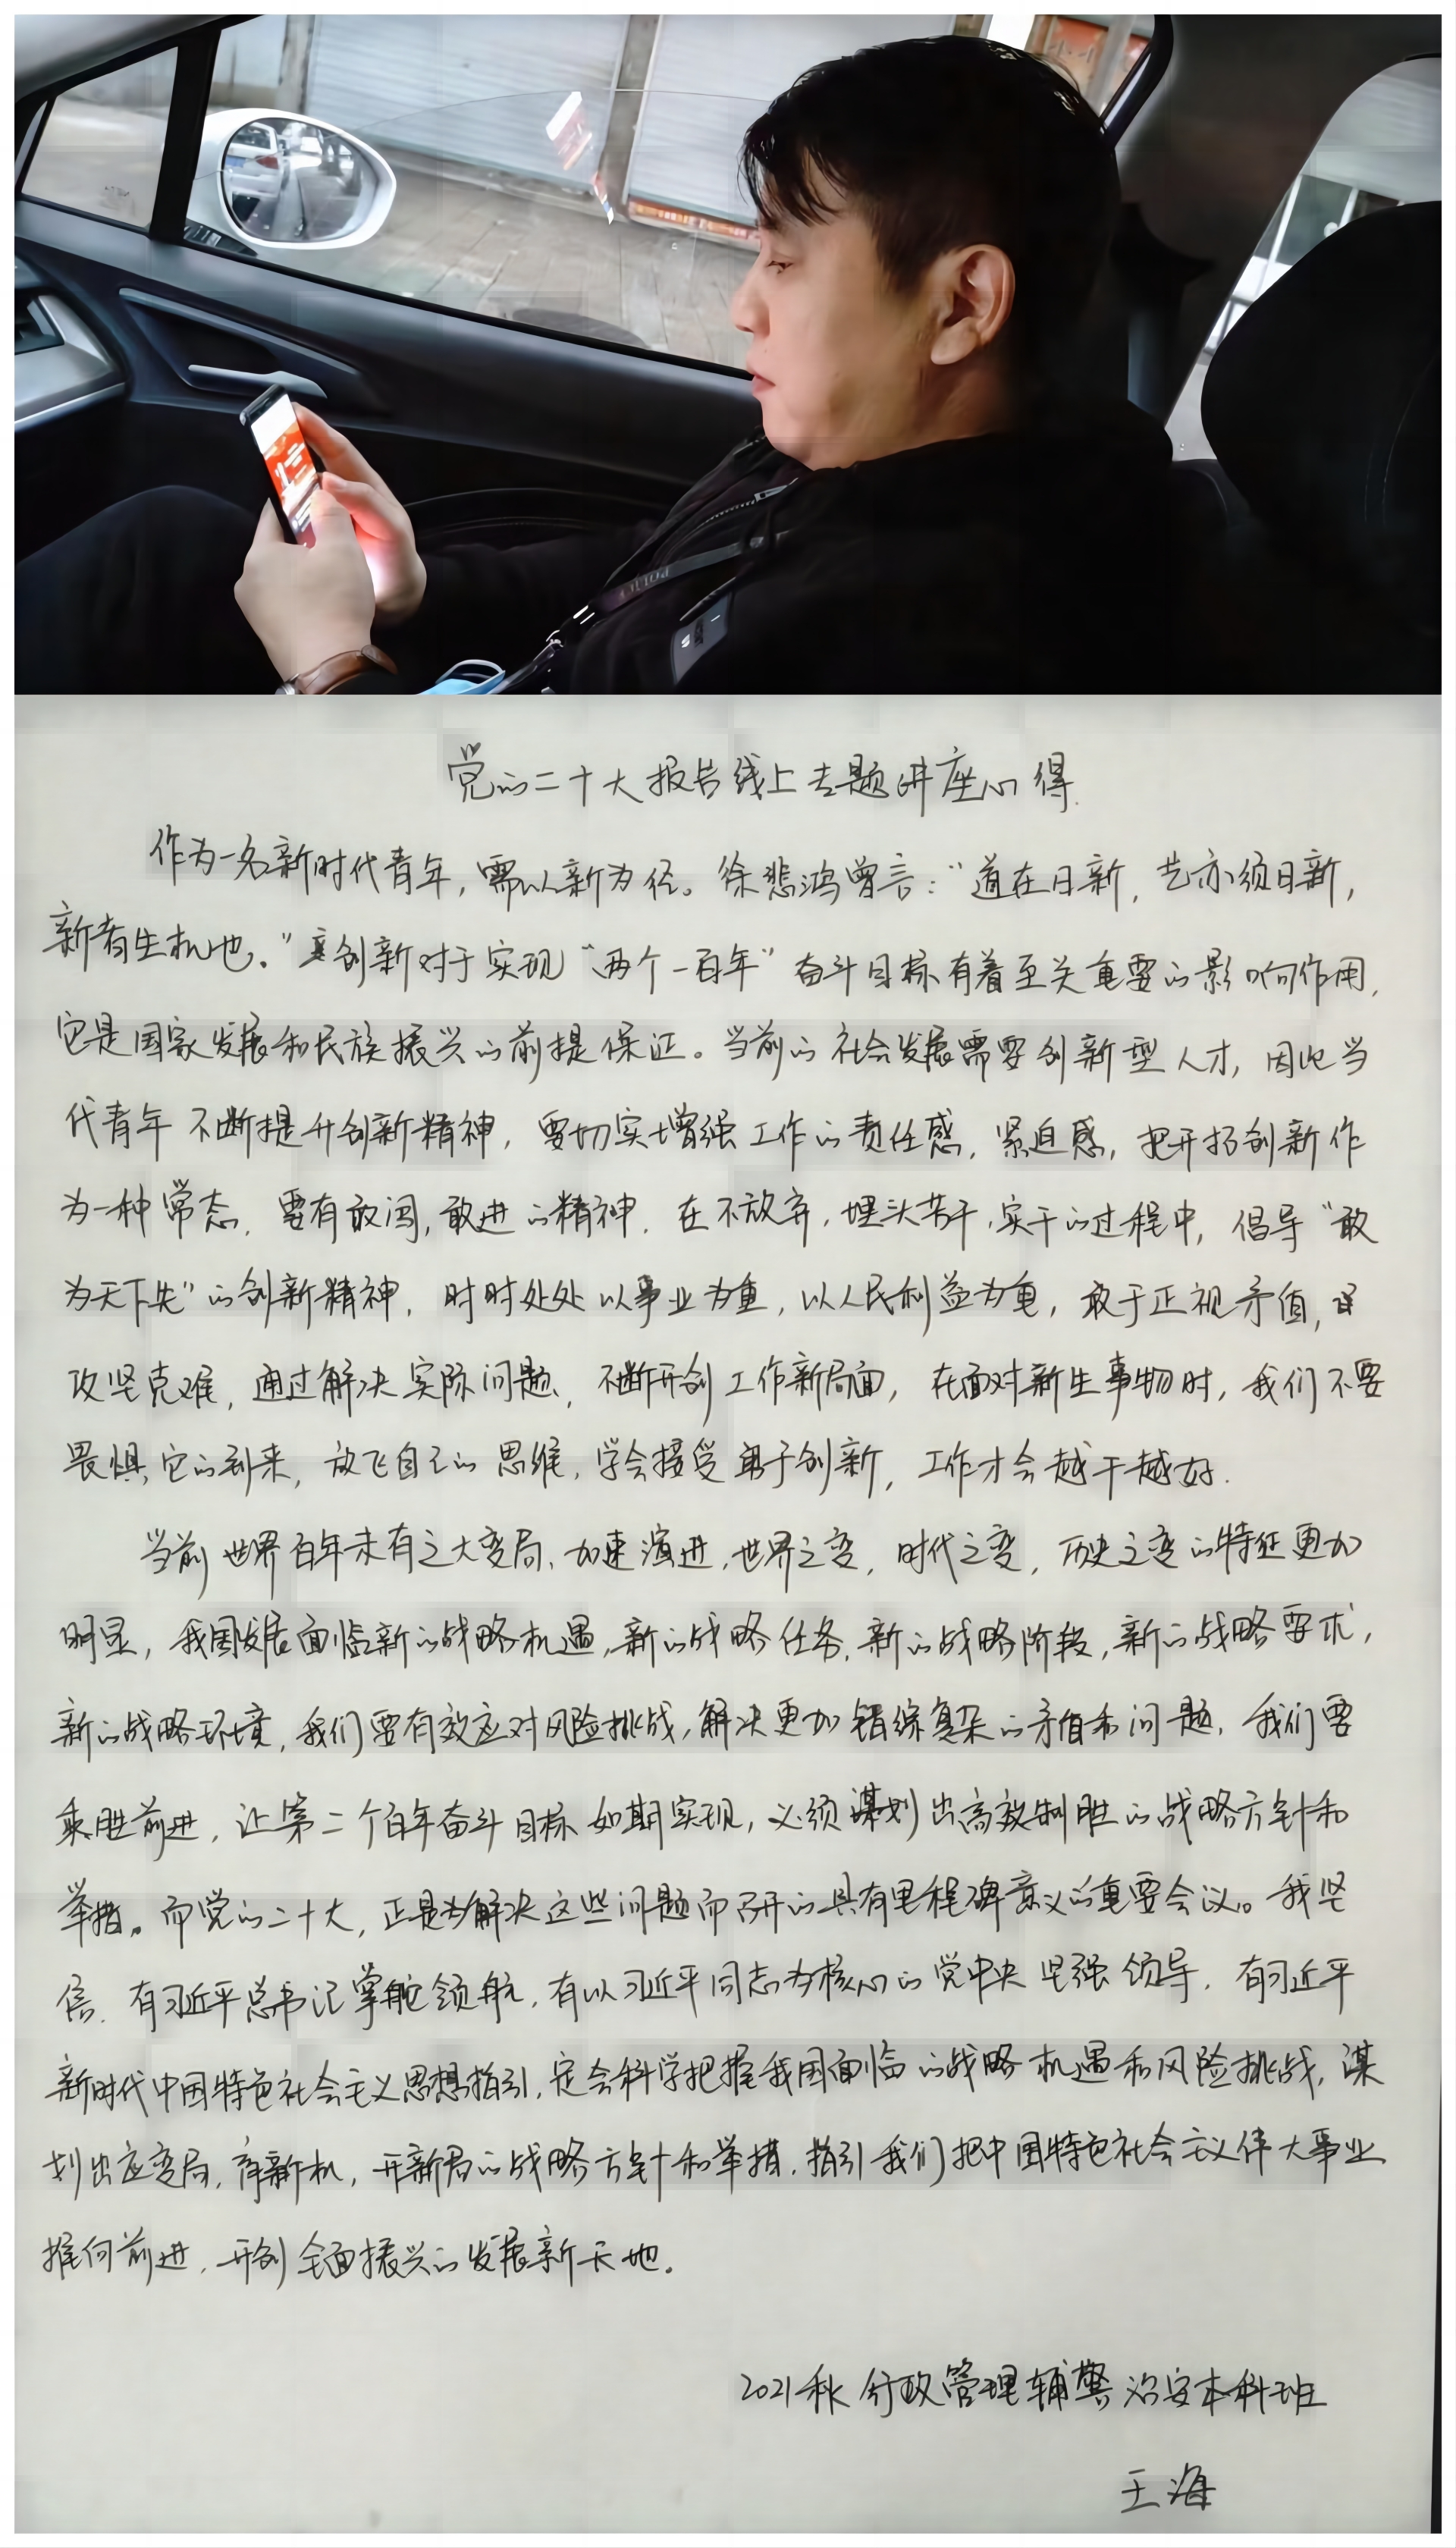 POLICE
党的二十大报告线上专题讲座心得
作为一名新时代青年，需以新为径。徐悲鸿曾言：“道在日新，艺亦须日新，
新者生机也。”创新对于实现“两个一百年”奋斗目标有着至关重要的影响作用，
它是国家发展和民族振兴的前提保证。当前的社会发展需要创新型人才，因此当
代青年不断提升创新精神，要切实增强工作的责任感，紧迫感，把开拓创新作
为一种常态，要有敢闯，敢进的精神，在不放弃，埋头苦干，实干的过程中，倡导“敢
为天下先”的创新精神，时时处处以事业为重，以人民利益为重，敢于正视矛盾，
攻坚克难，通过解决实际问题，不断开创工作新局面，在面对新生事物时，我们不要
畏惧它的到来，放飞自己的思维，学会接受勇于创新，工作才会越干越好.
当前世界百年未有之大变局，加速演进，世界之变，时代之变，历史之变的特征更加
明显，我国发展面临新的战略机遇，新的战略任务，新的战略阶段，新的战略要求，
新的战略环境，我们要有效应对风险挑战，解决更加错综复杂的矛盾和问题，我们要
乘胜前进，让第二个百年奋斗目标如期实现，必须谋划出高效制胜的战略方针和
举措。而党的二十大，正是为解决这些问题而召开的具有里程碑意义的重要会议。我坚
信，有习近平总书记掌舵领航，有以习近平同志为核心的党中央坚强领导，有习近平
新时代中国特色社会主义思想指引，定会科学把握我国面临的战略机遇和风险挑战，谋
划出应变局，育新机，开新局的战略方针和举措，指引我们把中国特色社会主义伟大事业
推向前进，开创全面振兴的发展新天地。
2021秋行政管理辅警治安本科班
王海